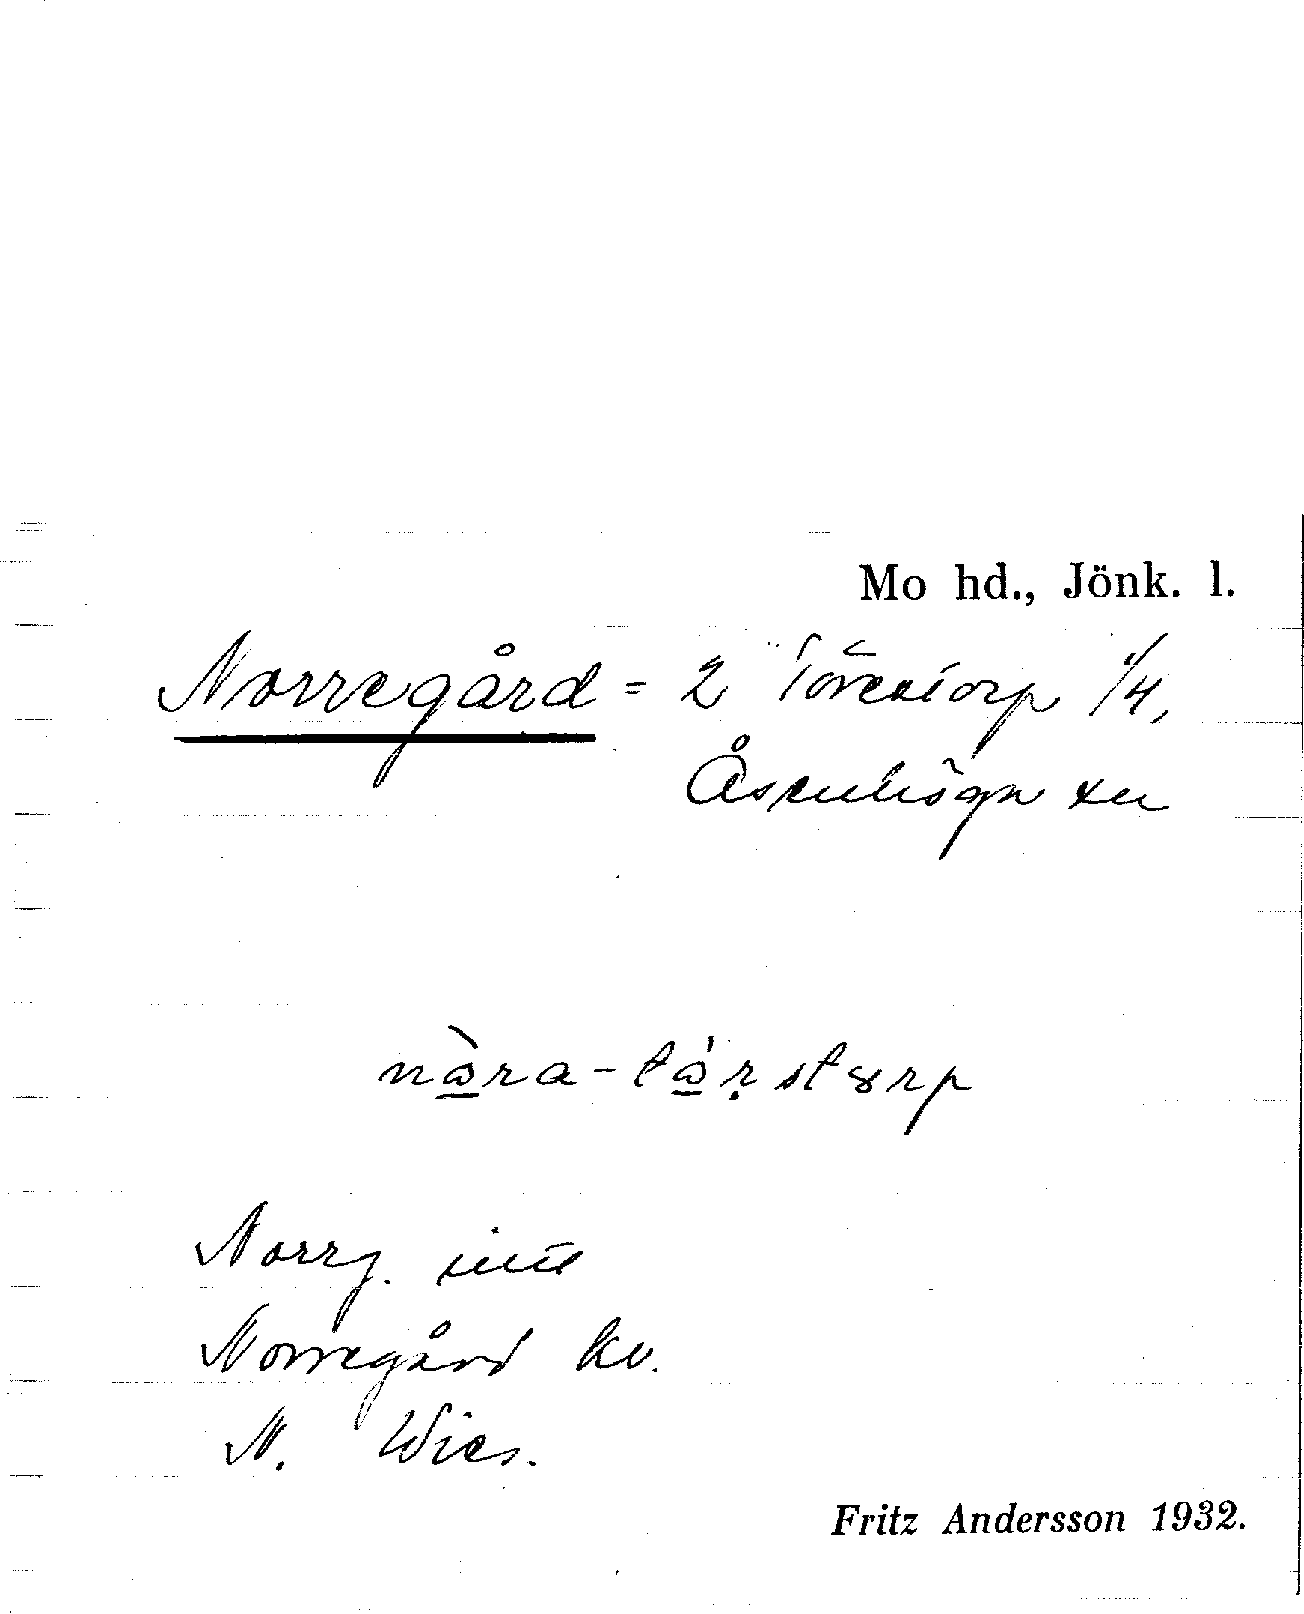 Mo hd., Jönk. l.
Norregård = 2 Törestorp 1/4,
Åsenhöga sn
nòra-tórstorp
Norrg.
Norregård kv.
N. Wies.
Fritz Andersson 1932.